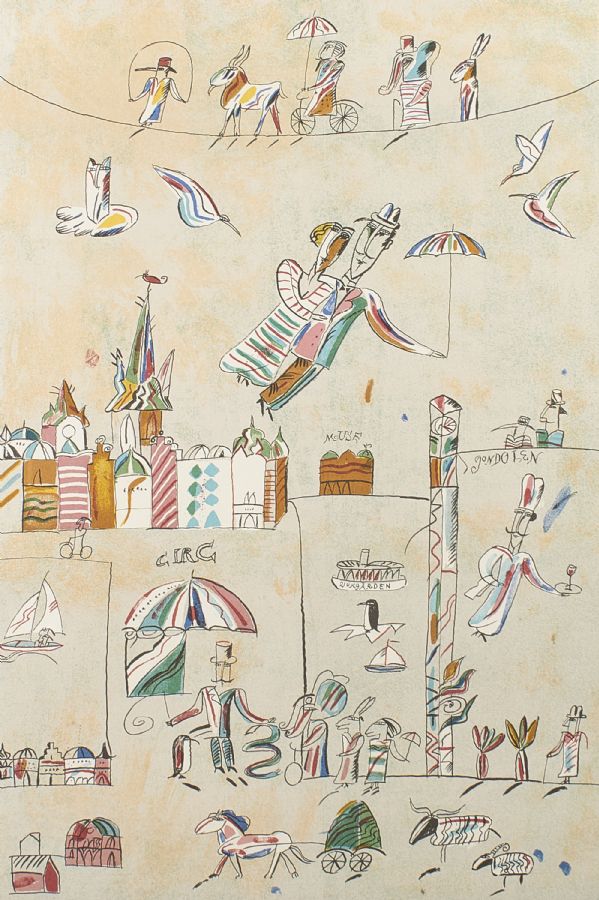 GONDOLEN
CIRC
DJURGÅRDEN